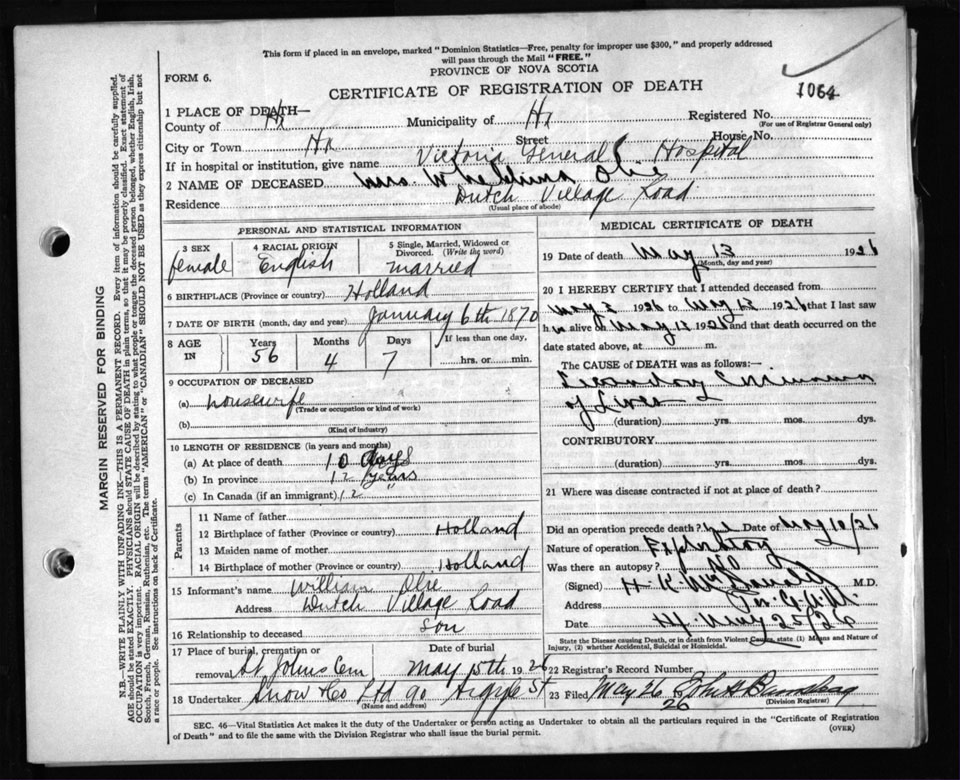 This form if placed in an envelope, marked "Dominion Statistics—Free, penalty for improper use $300," and properly addressed
will pass through the Mail "FREE."
PROVINCE OF NOVA SCOTIA
FORM 6.
CERTIFICATE OF REGISTRATION OF DEATH
1064
MARGIN RESERVED FOR BINDING
N.B.—WRITE PLAINLY WITH UNFADING INK—THIS IS A PERMANENT RECORD. Every item of information should be carefully supplied.
AGE should be stated EXACTLY. PHYSICIANS should STATE CAUSE OF DEATH in plain terms, so that it may be properly classified. Exact statement of
OCCUPATION is very important. RACIAL ORIGIN will be described by stating to what people or tongue the deceased person belonged, whether English, Irish,
Scotch, French, German, Russian, Ruthenian, etc. The terms "AMERICAN" or "CANADIAN" SHOULD NOT BE USED as they express citizenship but not
a race or people. See instructions on back of Certificate.
1 PLACE OF DEATH—
County of Hx Municipality of Hx Registered No.
(For use of Registrar General only)
City or Town Hx Street House No.
If in hospital or institution, give name Victoria General Hospital
2 NAME OF DECEASED Mrs. Olie
Residence Dutch Village Road
(Usual place of abode)
PERSONAL AND STATISTICAL INFORMATION
3 SEX female
4 RACIAL ORIGIN English
5 Single, Married, Widowed or Divorced. (Write the word) married
6 BIRTHPLACE (Province or country) Holland
7 DATE OF BIRTH (month, day and year) January 6th 1870
8 AGE IN Years 56 Months 4 Days 7 If less than one day, hrs. or min.
9 OCCUPATION OF DECEASED
(a) housewife
(Trade or occupation or kind of work)
(b)
(Kind of industry)
10 LENGTH OF RESIDENCE (in years and months)
(a) At place of death 10 days
(b) In province 12 years
(c) In Canada (if an immigrant) 12 "
Parents
11 Name of father
12 Birthplace of father (Province or country) Holland
13 Maiden name of mother
14 Birthplace of mother (Province or country) Holland
15 Informant's name William Olie
Address Dutch Village Road
16 Relationship to deceased Son
17 Place of burial, cremation or removal St Johns Cem Date of burial May 15th 1926
18 Undertaker Snow & Co Ltd 90 Argyle St
(Name and address)
MEDICAL CERTIFICATE OF DEATH
19 Date of death May 13 1926
(Month, day and year)
20 I HEREBY CERTIFY that I attended deceased from
May 2 1926 to May 13 1926 that I last saw
h alive on May 12 1926 and that death occurred on the
date stated above, at m.
The CAUSE of DEATH was as follows:—
Secondary
of Liver
(duration) yrs. mos. dys.
CONTRIBUTORY
(duration) yrs. mos. dys.
21 Where was disease contracted if not at place of death?
Did an operation precede death? Date of May 10/26
Nature of operation Exploratory
Was there an autopsy? no
(Signed) H. K. McDonald M.D.
Address
Date Hx May 25/26
State the Disease causing Death, or in death from Violent Causes, state (1) Means and Nature of
Injury, (2) whether Accidental, Suicidal or Homicidal.
22 Registrar's Record Number
23 Filed May 26 26
(Division Registrar)
SEC. 46—Vital Statistics Act makes it the duty of the Undertaker or person acting as Undertaker to obtain all the particulars required in the "Certificate of Registration
of Death" and to file the same with the Division Registrar who shall issue the burial permit.
(OVER)